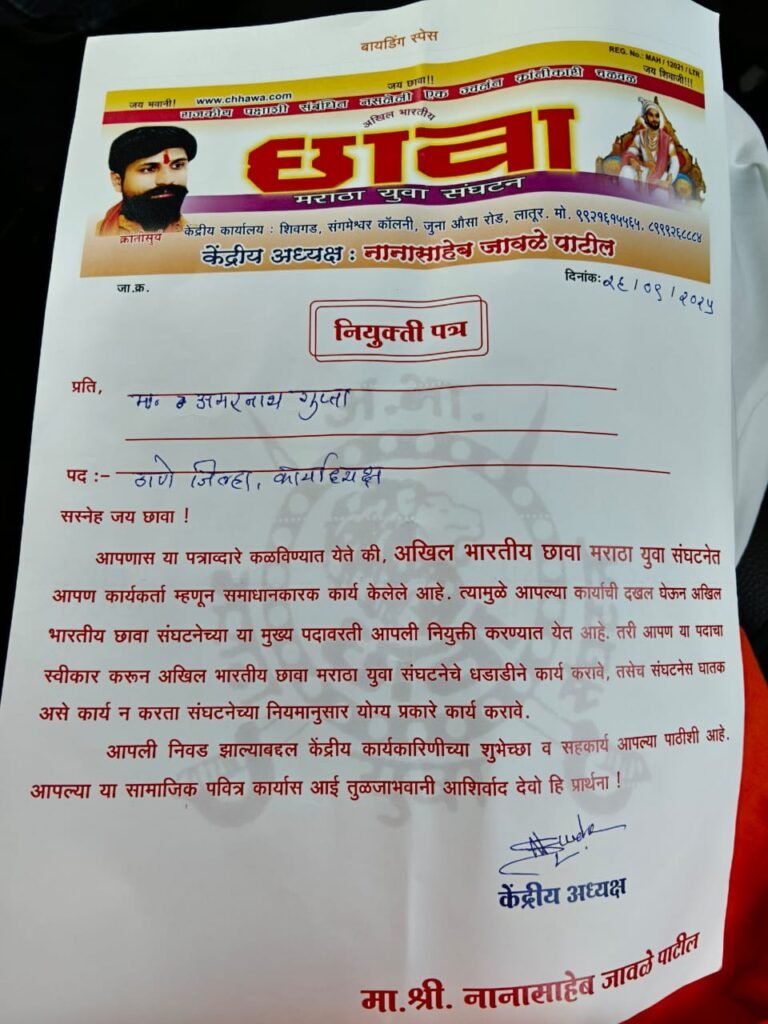 बायडिंग स्पेस
REG. No.: MAH / 12021 / LTR
जय भवानी! www.chhawa.com जय छावा!! जय शिवाजी!!!
राजकीय पक्षाशी संबंधित नसलेली एक ज्वलंत क्रांतीकारी चळवळ
अखिल भारतीय
छावा
मराठा युवा संघटन
क्रांतीसुर्य
केंद्रीय कार्यालय : शिवगड, संगमेश्वर कॉलनी, जुना औसा रोड, लातूर. मो. ९९२१६१५५६५, ८९९९२६८८८४
केंद्रीय अध्यक्ष : नानासाहेब जावळे पाटील
जा.क्र. दिनांक: २६ / ०९ / २०२५
नियुक्ती पत्र
प्रति, मा. अमरनाथ गुप्ता
पद :- ठाणे जिल्हा, कार्याध्यक्ष
सस्नेह जय छावा !
आपणास या पत्राव्दारे कळविण्यात येते की, अखिल भारतीय छावा मराठा युवा संघटनेत
आपण कार्यकर्ता म्हणून समाधानकारक कार्य केलेले आहे. त्यामुळे आपल्या कार्याची दखल घेऊन अखिल
भारतीय छावा संघटनेच्या या मुख्य पदावरती आपली नियुक्ती करण्यात येत आहे. तरी आपण या पदाचा
स्वीकार करून अखिल भारतीय छावा मराठा युवा संघटनेचे धडाडीने कार्य करावे, तसेच संघटनेस घातक
असे कार्य न करता संघटनेच्या नियमानुसार योग्य प्रकारे कार्य करावे.
आपली निवड झाल्याबद्दल केंद्रीय कार्यकारिणीच्या शुभेच्छा व सहकार्य आपल्या पाठीशी आहे.
आपल्या या सामाजिक पवित्र कार्यास आई तुळजाभवानी आशिर्वाद देवो हि प्रार्थना !
केंद्रीय अध्यक्ष
मा.श्री. नानासाहेब जावळे पाटील